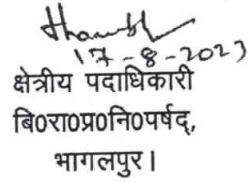 17-8-2023
क्षेत्रीय पदाधिकारी
बि0रा0प्र0नि0पर्षद्,
भागलपुर।